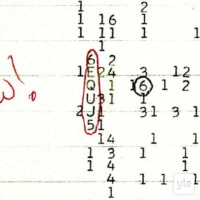 1 2
1 16 1
1 11 1 1 1
1
6 2
1 E 24 3 12
w! Q 1 16 1 2
U 31 1
2 J 1 31 3 1
5 1
14 1 1
1 3 1
1 4 1 1
4 1 1 1
1